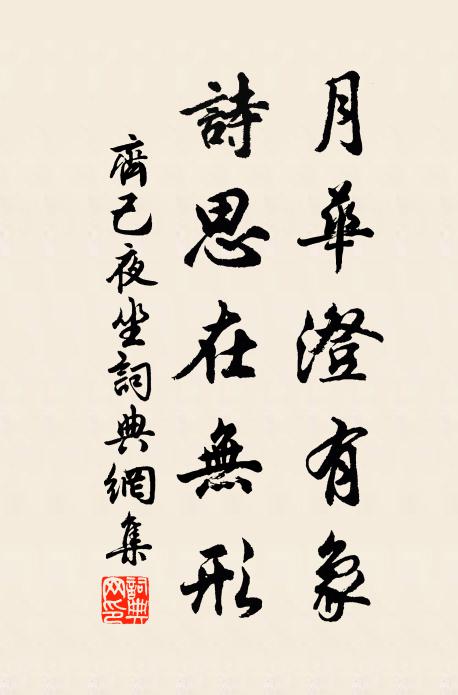 月華澄有象
詩思在無形
齊己夜坐詞典網集
詞典网印